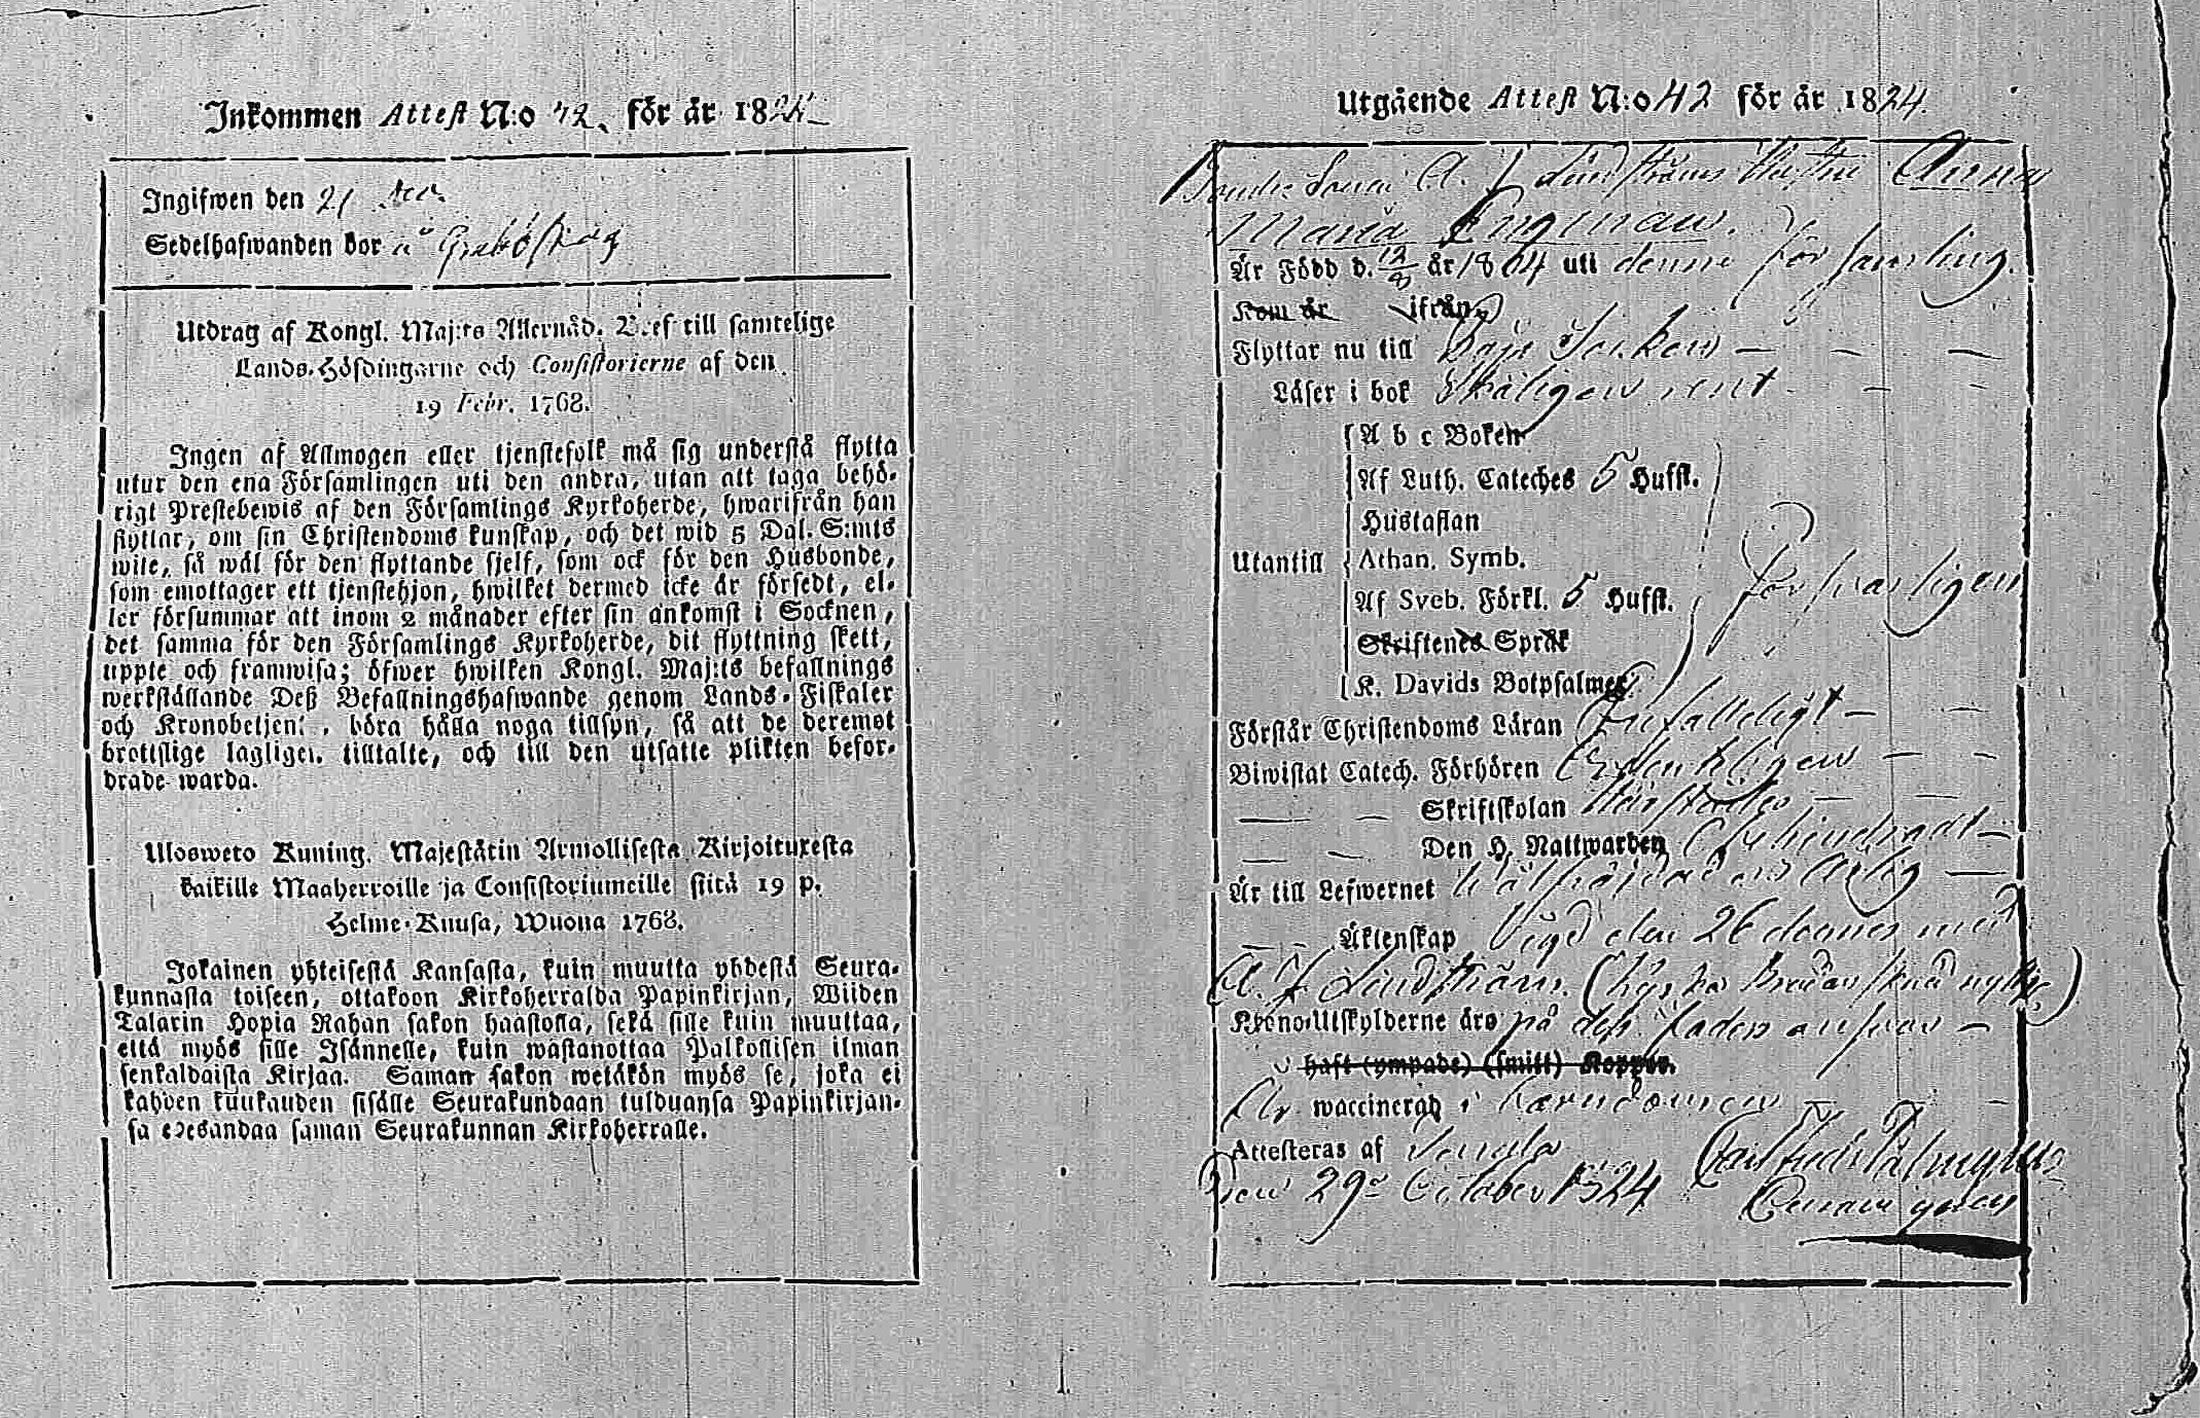 Inkommen Attest N:o 42. för år 182
Ingifwen den 21 Nov.
Sedelhafwanden bor å Grabbskog
Utdrag af Kongl. Maj:ts Allernåd. Bref till samtelige
Lands-Höfdingarne och Consistorierne af den
19 Febr. 1768.
Ingen af Allmogen eller tjenstefolk må sig understå flytta
utur den ena Församlingen uti den andra, utan att taga behö-
rigt Prestebewis af den Församlings Kyrkoherde, hwarifrån han
flyttar, om sin Christendoms kunskap, och det wid 5 Dal. S:mts
wite, så wäl för den flyttande sjelf, som ock för den Husbonde,
som emottager ett tjenstehjon, hwilket dermed icke är försedt, el-
ler försummar att inom 2 månader efter sin ankomst i Socknen,
det samma för den Församlings Kyrkoherde, dit flyttning skett,
uppte och framwisa; öfwer hwilken Kongl. Maj:ts befallnings
werkställande Deß Befallningshafwande genom Lands-Fiskaler
och Kronobetjent, böra hålla noga tillsyn, så att de deremot
brottslige lagligen tilltalte, och till den utsatte plikten befor-
drade warda.
Ulosweto Kuning. Majestätin Armollisesta Kirjoituxesta
kaikille Maaherroille ja Consistoriumeille siitä 19 p.
Helme-Kuusa, Wuona 1768.
Jokainen yhteisestä Kansasta, kuin muutta yhdestä Seura-
kunnasta toiseen, ottakoon Kirkoherralda Papinkirjan, Wiiden
Talarin Hopia Rahan sakon haastolla, sekä sille kuin muuttaa,
että myös sille Isännelle, kuin wastanottaa Palkollisen ilman
senkaldaista Kirjaa. Saman sakon wetäkön myös se, joka ei
kahden kuukauden sisälle Seurakundaan tulduansa Papinkirjan-
sa edesandaa saman Seurakunnan Kirkoherralle.
Utgående Attest N:o 42 för år 1824.
A. J. Lindströms Hustru Anna
Maria Engman.
Är Född d. 12/8 år 1804 uti denna församling.
Kom år ifrån
Flyttar nu till Pojo Socken
Läser i bok Skäligen rent
A b c Boken
Af Luth. Cateches 5 Hufst.
Hustaflan
Utantill Athan. Symb.
Af Sveb. Förkl. 5 Hufst. Försvarligen
Skriftenes Språk
K. Davids Botpsalmer
Förstår Christendoms Läran Enfalleligt
Biwistat Catech. Förhören Ordentligen
Skriftskolan
Den H. Nattwarden Ohehindradt
Är till Lefwernet Wälfräjdad och Ärlig
Äktenskap Vigd den 26 dennes med
A. J. Lindström.
Krono-Utskylderne äro på dess faders ansvar
haft (ympade) (smitt) Koppor.
Är waccinerad i barndomen
Attesteras af Senala
Den 29de October 1824